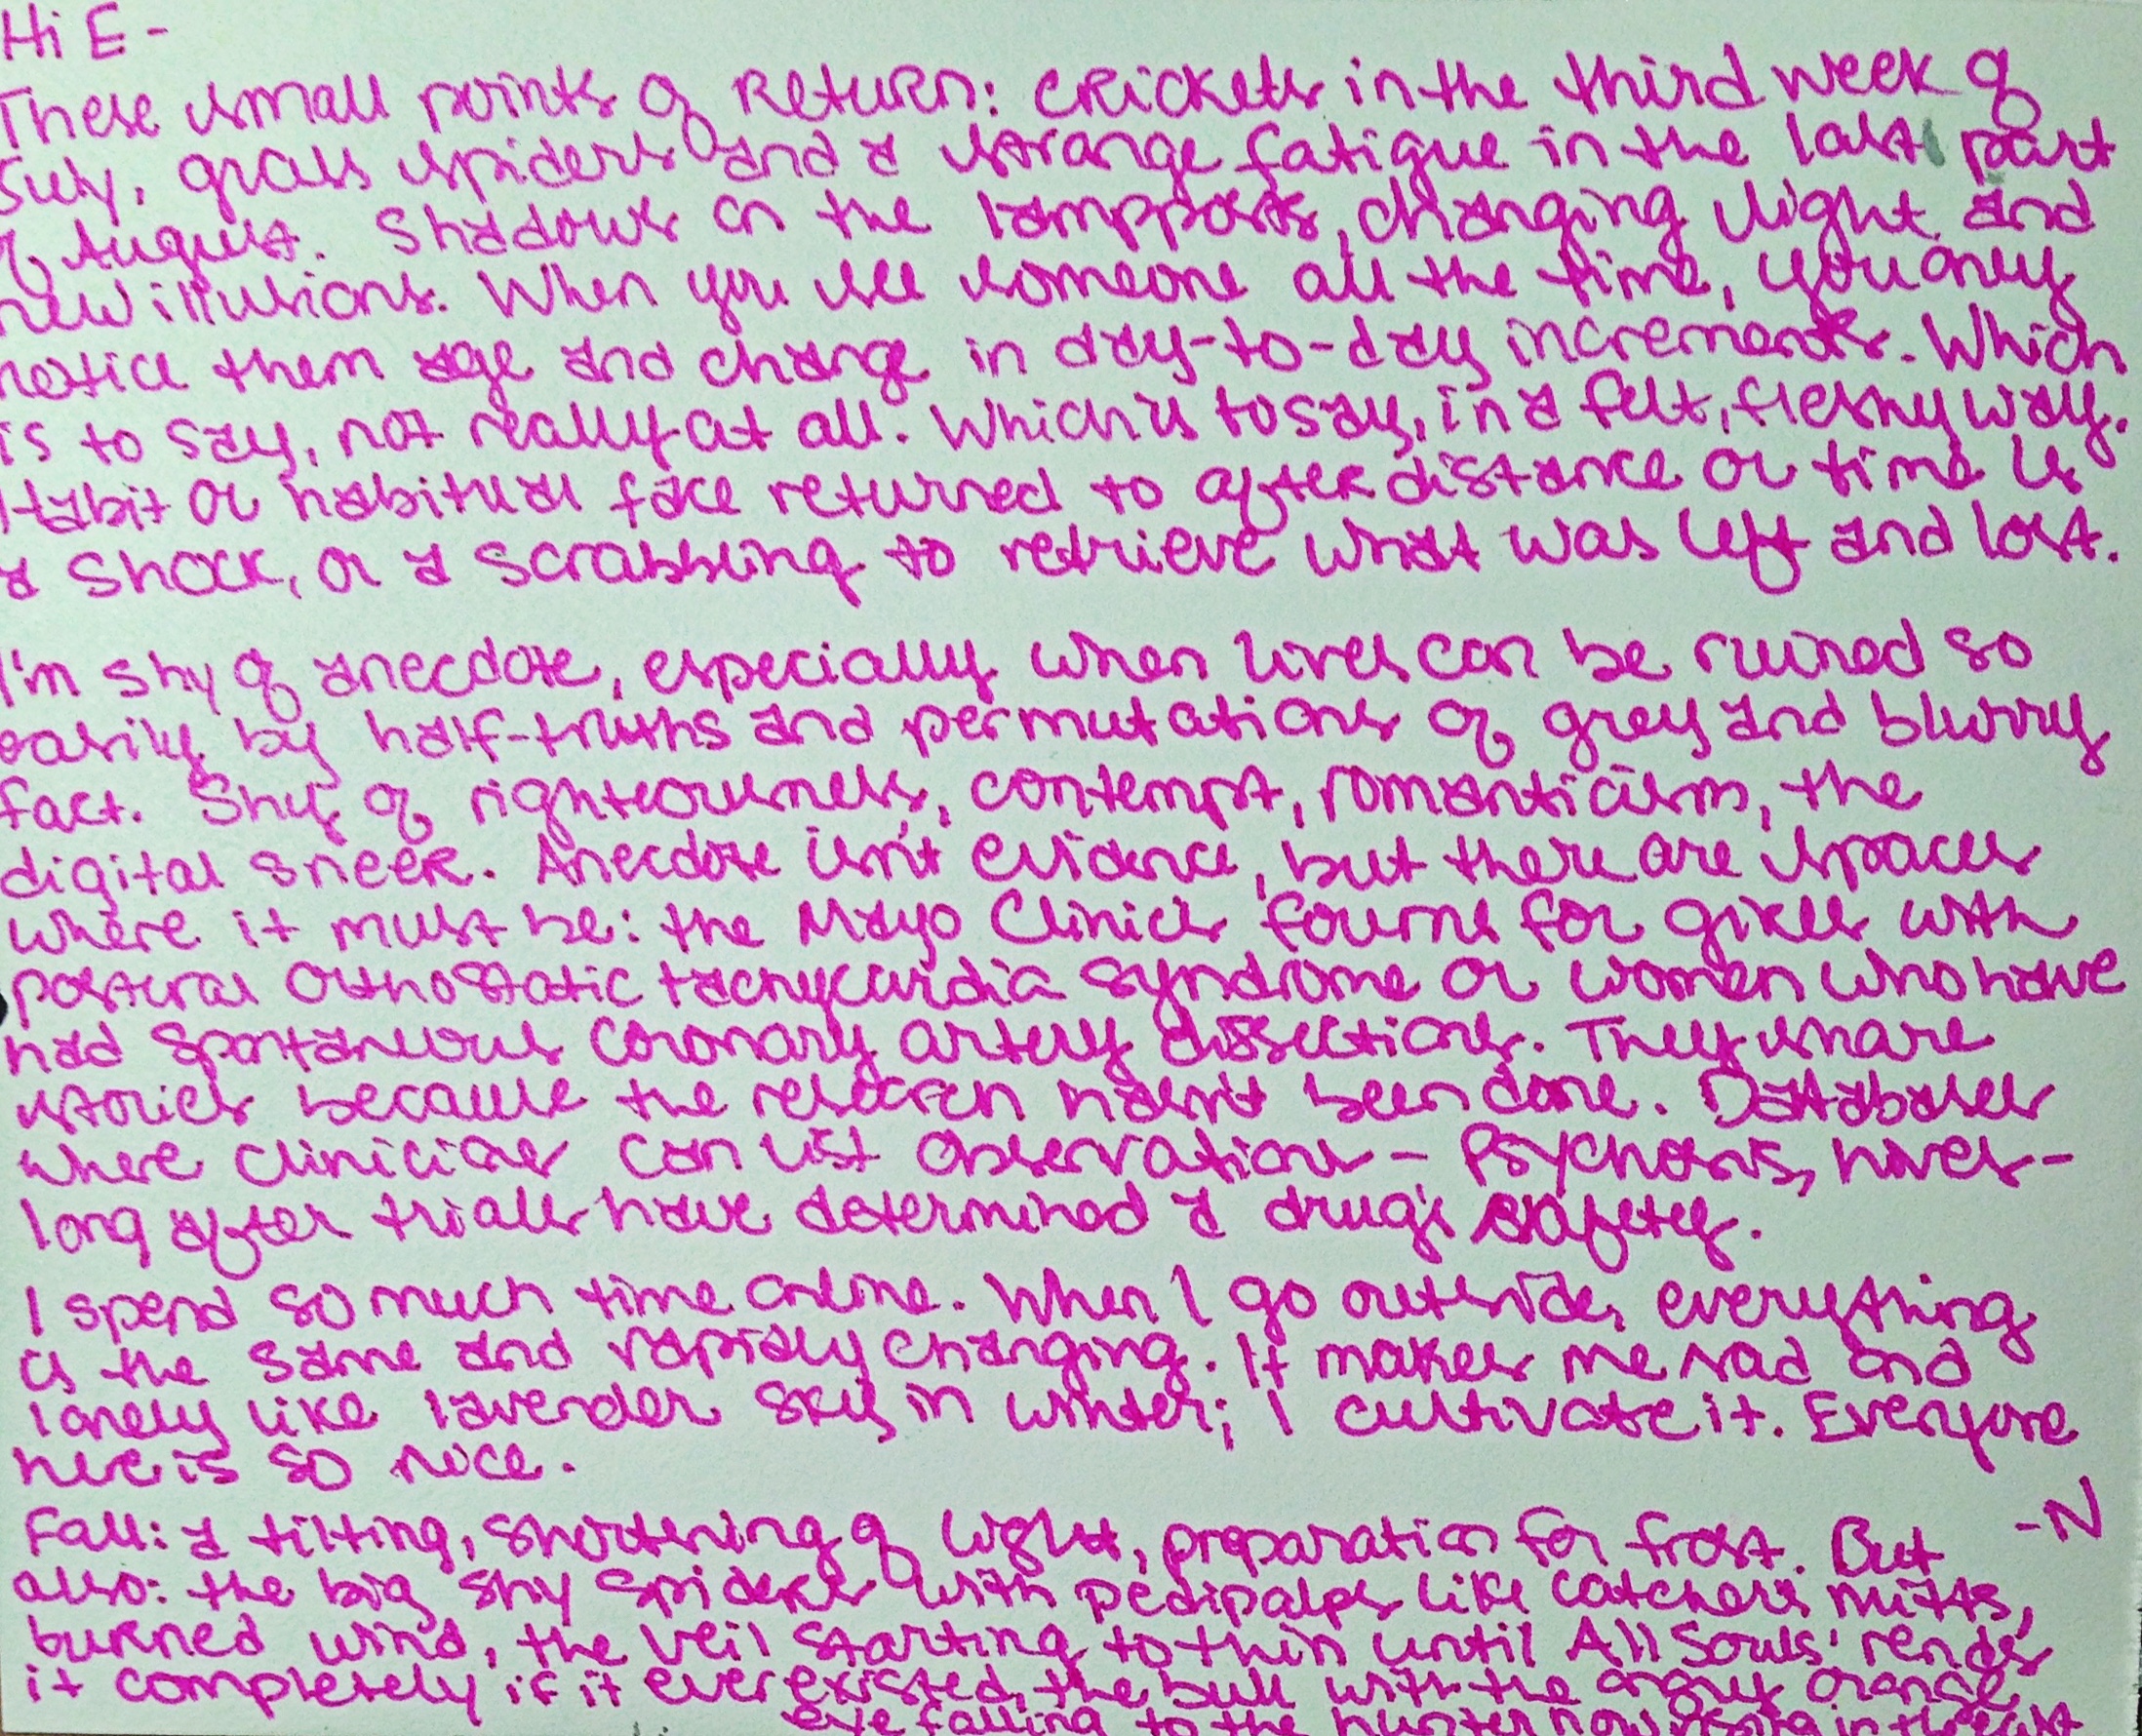 Hi E -
These small points of Return: crickets in the third week of
July, grass spiders and a strange fatigue in the last part
of August. Shadows on the lampposts, changing light and
new illusions. When you see someone all the time, you only
notice them age and change in day-to-day increments. Which
is to say, not really at all. Which is to say, in a felt, fleshy way.
Habit or habitual face returned to after distance or time is
a shock, or a scrabbling to retrieve what was left and lost.
I'm shy of anecdote, especially when lives can be ruined so
easily by half-truths and permutations of grey and blurry
fact. Shy of righteousness, contempt, romanticism, the
digital sneer. Anecdote isn't evidence, but there are spaces
where it must be: the Mayo Clinic's forums for girls with
postural orthostatic tachycardia syndrome or women who have
had spontaneous coronary artery dissections. They share
stories because the research hasn't been done. Databases
where clinicians can list observations - psychosis, hives -
long after trials have determined a drug's safety.
I spend so much time online. When I go outside, everything
is the same and rapidly changing. It makes me sad and
lonely like lavender sky in winter; I cultivate it. Everyone
here is so nice.
-N
Fall: a tilting, shortening of light, preparation for frost. But
also: the big shy spiders with pedipalps like catcher's mitts,
burned wind, the veil starting to thin until All Souls' rends
it completely if it ever existed, the bull with the angry orange
eye falling to the hunter now rising in the east